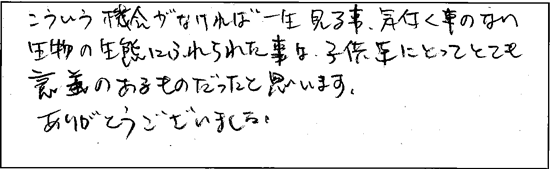 こういう機会がなければ一生見る事、気付く事のない
生物の生態にふれられた事は、子供達にとってとても
意義のあるものだったと思います。
ありがとうございました。